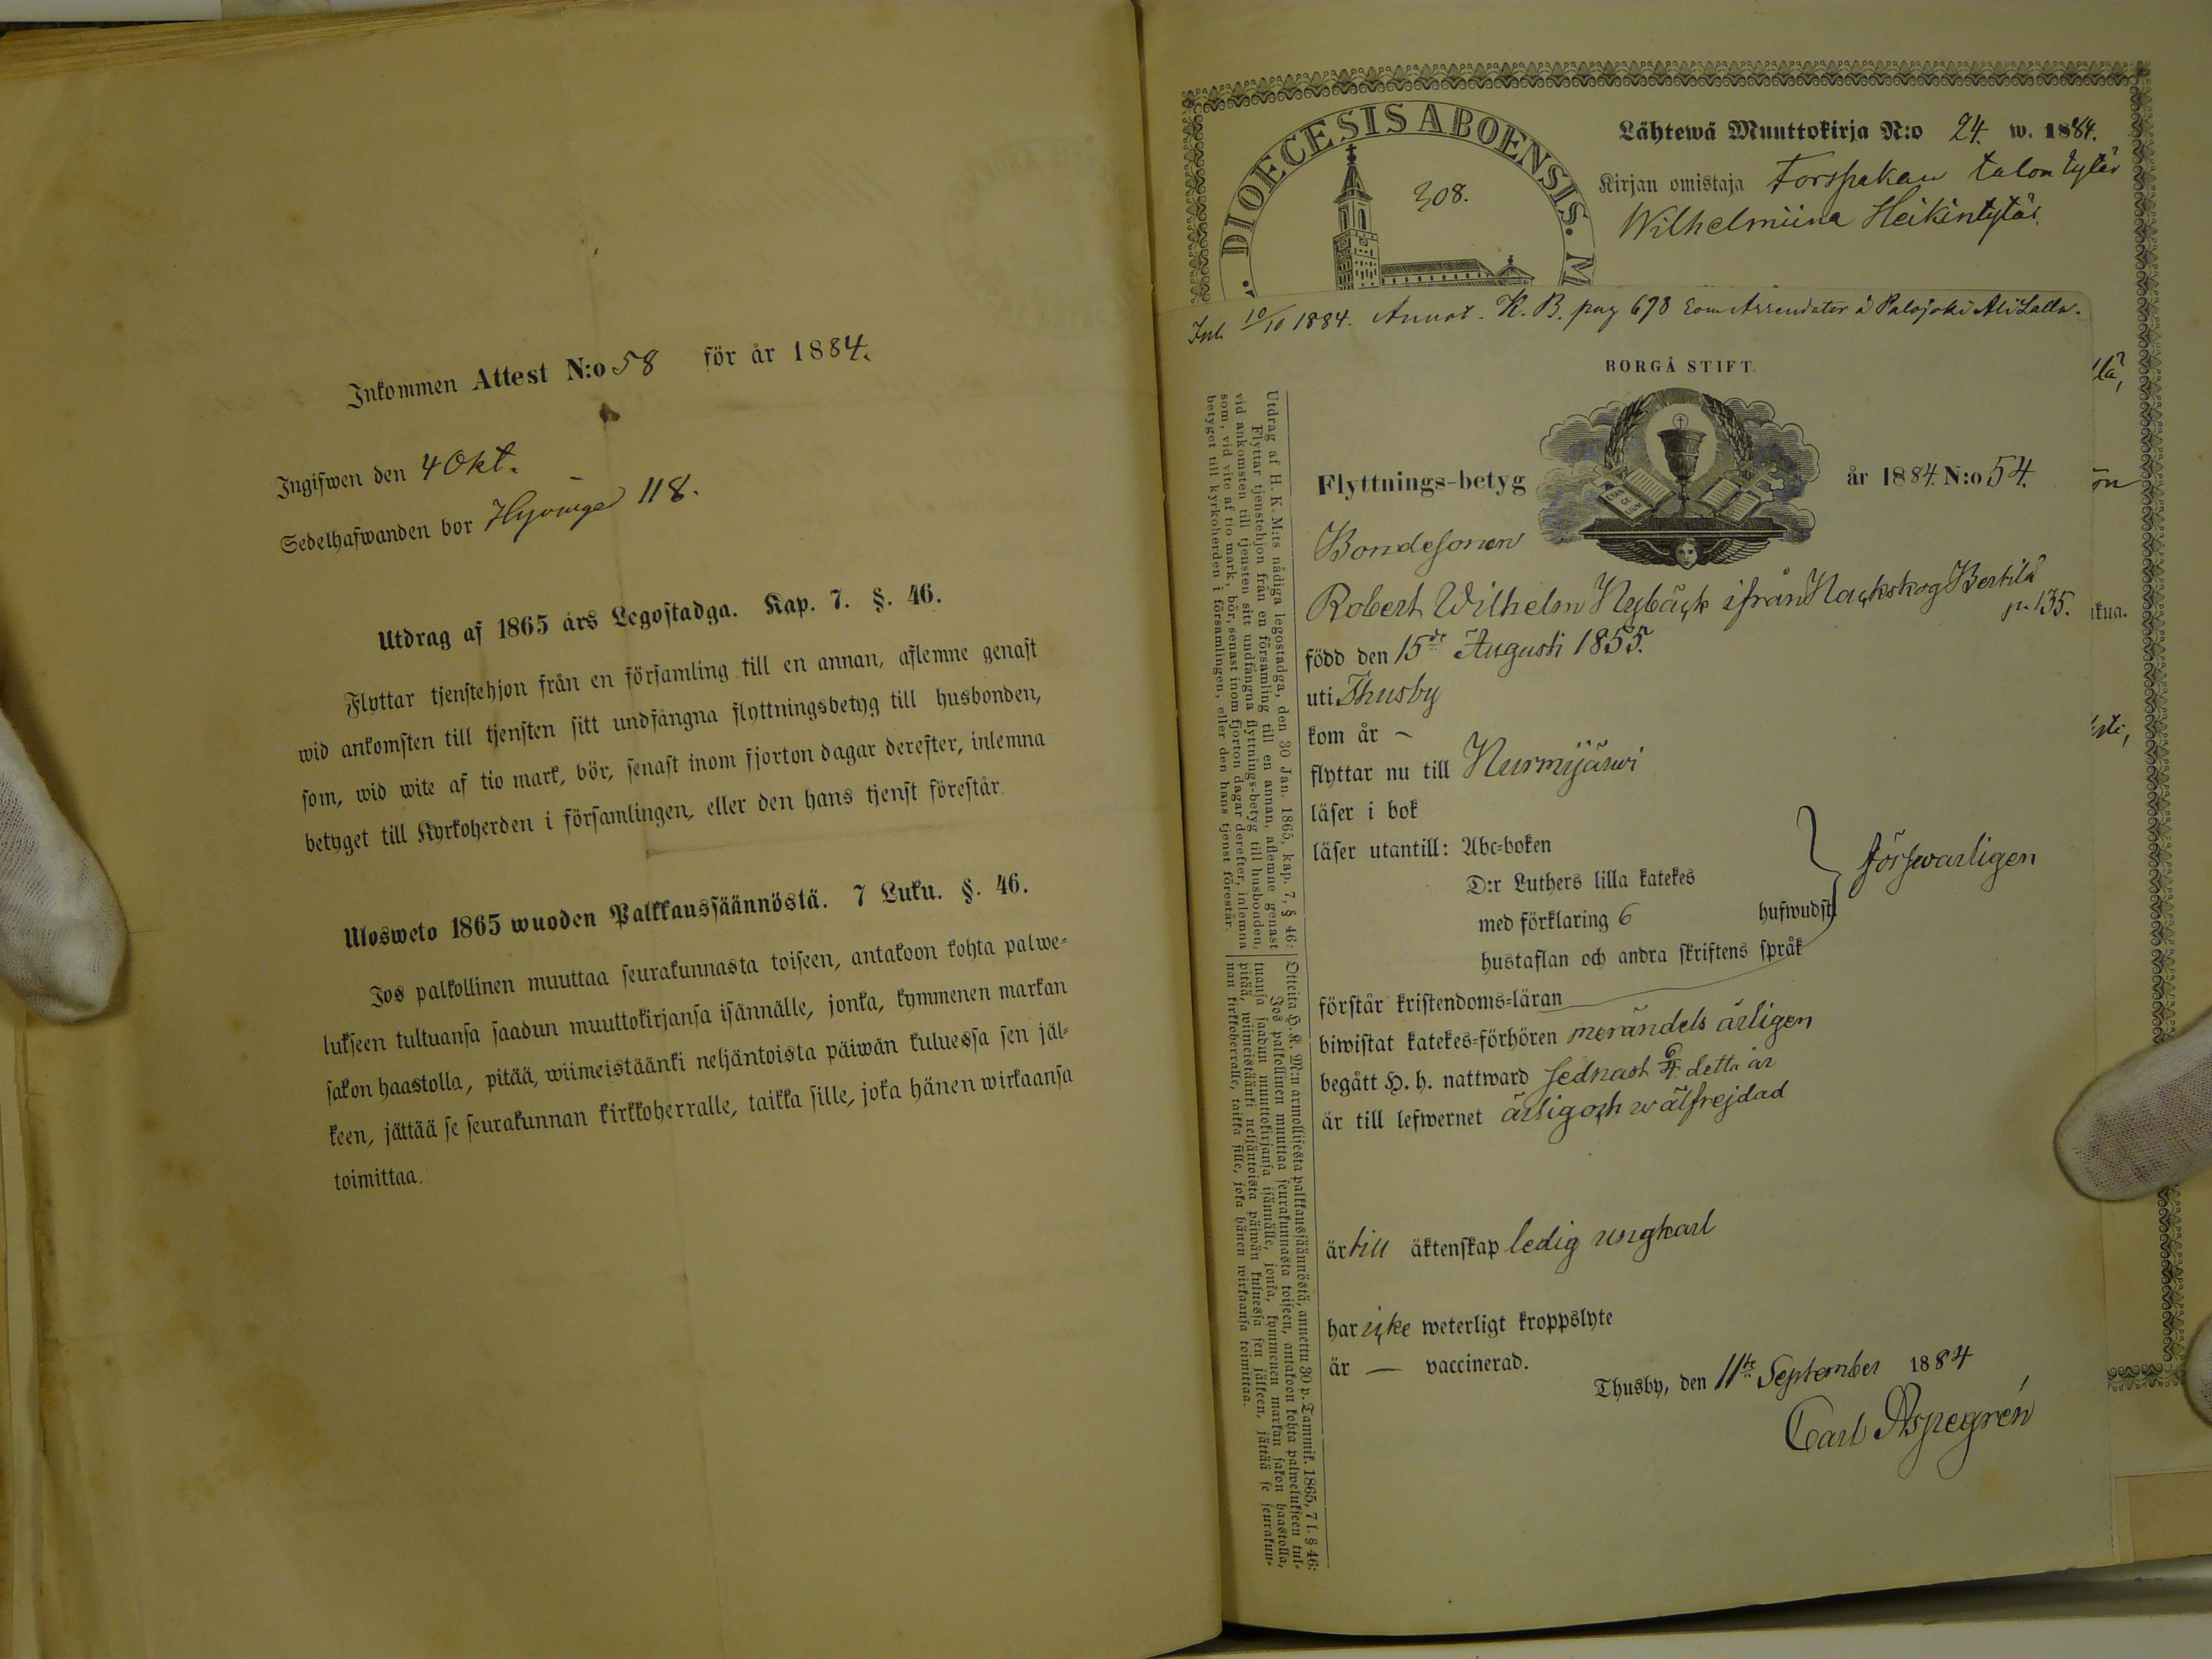 Inkommen Attest N:o 58 för år 1884.
Ingifwen den 4 Okt.
Sedelhafwanden bor Hyvinge 118.
Utdrag af 1865 års Legostadga. Kap. 7. §. 46.
Flyttar tjenstehjon från en församling till en annan, aflemne genast
wid ankomsten till tjensten sitt undfångna flyttningsbetyg till husbonden,
som, wid wite af tio mark, bör, senast inom fjorton dagar derefter, inlemna
betyget till Kyrkoherden i församlingen, eller den hans tjenst förestår.
Ulosweto 1865 wuoden Palkkaussäännöstä. 7 Luku. §. 46.
Jos palkollinen muuttaa seurakunnasta toiseen, antakoon kohta palwe-
lukseen tultuansa saadun muuttokirjansa isännälle, jonka, kymmenen markan
sakon haastolla, pitää, wiimeistäänki neljäntoista päiwän kuluessa sen jäl-
keen, jättää se seurakunnan kirkkoherralle, taikka sille, joka hänen wirkaansa
toimittaa.
DIOECESIS ABOENSIS. M
308.
Lähtewä Muuttokirja N:o 24. w. 1884.
Kirjan omistaja Forspakan talon tytär
Wilhelmiina Heikintytär.
Inl. 10/10 1884. Annot. K. B. pag 678 som Arrendator å Palojoki Ali Lalla.
BORGÅ STIFT.
Flyttnings-betyg år 1884. N:o 54.
Bondesonen
Robert Wilhelm Nybäck ifrån Nackskog Bertila
p. 135.
född den 15de Augusti 1855.
uti Thusby
kom år –
flyttar nu till Nurmijärwi
läser i bok
läser utantill: Abc-boken
D:r Luthers lilla katekes
försvarligen
med förklaring 6 hufwudst.
hustaflan och andra skriftens språk
förstår kristendoms-läran
biwistat katekes-förhören merändels årligen
begått H. h. nattward sednast 6/4 detta år
är till lefwernet ärlig och wälfrejdad
är till äktenskap ledig ungkarl
har icke weterligt kroppslyte
är — vaccinerad.
Thusby, den 11te September 1884
Carl Aspegrén
Utdrag af H. K. M:ts nådiga legostadga, den 30 Jan. 1865, kap. 7, § 46:
Flyttar tjenstehjon från en församling till en annan, aflemne genast
vid ankomsten till tjensten sitt undfångna flyttnings-betyg till husbonden,
som, vid vite af tio mark, bör, senast inom fjorton dagar derefter, inlemna
betyget till kyrkoherden i församlingen, eller den hans tjenst förestår.
Otteita H. K. M:n armollisesta palkkaussäännöstä, annettu 30 p. Tammik. 1865, 7 l. § 46:
Jos palkollinen muuttaa seurakunnasta toiseen, antakoon kohta palwelukseen tul-
tuansa saadun muuttokirjansa isännälle, jonka, kymmenen markan sakon haastolla,
pitää, wiimeistäänki neljäntoista päiwän kuluessa sen jälkeen, jättää se seurakun-
nan kirkkoherralle, taikka sille, joka hänen wirkaansa toimittaa.